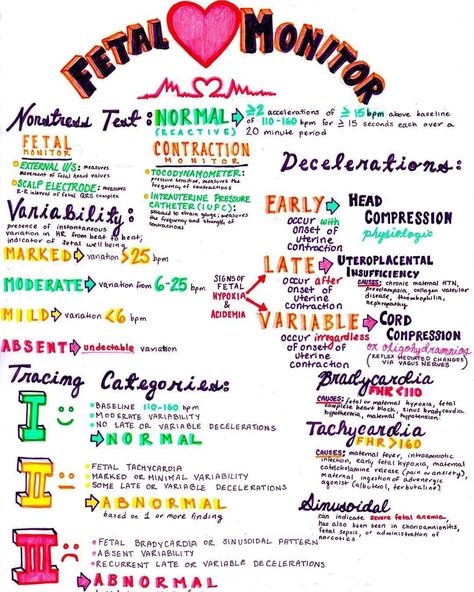 FETAL MONITOR
Nonstress Test: NORMAL → ≥2 accelerations of ≥ 15 bpm above baseline
(REACTIVE) of 110-160 bpm for ≥ 15 seconds each over a
20 minute period
FETAL
MONITOR
• EXTERNAL U/S: measures
movement of fetal heart valves
• SCALP ELECTRODE: measures
R-R intervals of fetal QRS complex
CONTRACTION
MONITOR
• TOCODYNAMOMETER:
pressure sensitive, measures the
frequency of contractions
• INTRAUTERINE PRESSURE
CATHETER (IUPC):
attached to strain gauge; measures
the frequency and strength of
contractions
Variability:
presence of instantaneous
variation in HR from beat to beat;
indicator of fetal well being
MARKED → variation >25 bpm
MODERATE → variation from 6-25 bpm
MILD → variation <6 bpm
ABSENT → undectable variation
Decelerations:
EARLY → HEAD
COMPRESSION
occur with
onset of
uterine
contraction
physiologic
SIGNS OF
FETAL
HYPOXIA
&
ACIDEMIA
LATE → UTEROPLACENTAL
INSUFFICIENCY
occur after
onset of
uterine
contraction
CAUSES: chronic maternal HTN,
preeclampsia, collagen vascular
disease, thrombophilia,
nephropathy
VARIABLE → CORD
COMPRESSION
occur irregardless
of onset of
uterine
contraction
or oligohydramnios
(REFLEX MEDIATED CHANGES
VIA VAGUS NERVES)
Bradycardia
FHR <110
CAUSES: fetal or maternal hypoxia, fetal
complete heart block, sinus bradycardia
hypothermia, maternal hypotension
Tachycardia
FHR >160
CAUSES: maternal fever, intraamniotic
infection, early fetal hypoxia, maternal
catecholamine release (pain or anxiety),
maternal ingestion of adrenergic
agonist (albuterol, terbutaline)
Sinusoidal
can indicate severe fetal anemia,
has also been seen in chorioamnionitis,
fetal sepsis, or administration of
narcotics
Tracing Categories:
I
• BASELINE 110-160 bpm
• MODERATE VARIABILITY
• NO LATE OR VARIABLE DECELERATIONS
→ NORMAL
II
• FETAL TACHYCARDIA
• MARKED OR MINIMAL VARIABILITY
• SOME LATE OR VARIABLE DECELERATIONS
→ ABNORMAL
based on 1 or more finding
III
• FETAL BRADYCARDIA OR SINUSOIDAL PATTERN
• ABSENT VARIABILITY
• RECURRENT LATE OR VARIABLE DECELERATIONS
→ ABNORMAL